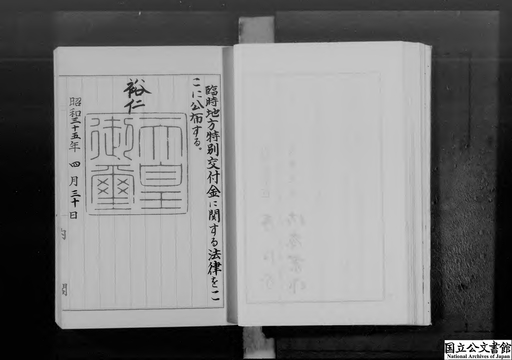 臨時地方特別交付金に関する法律をこ
こに公布する。
裕仁
天皇
御璽
昭和三十五年 四月三十日
国立公文書館
National Archives of Japan